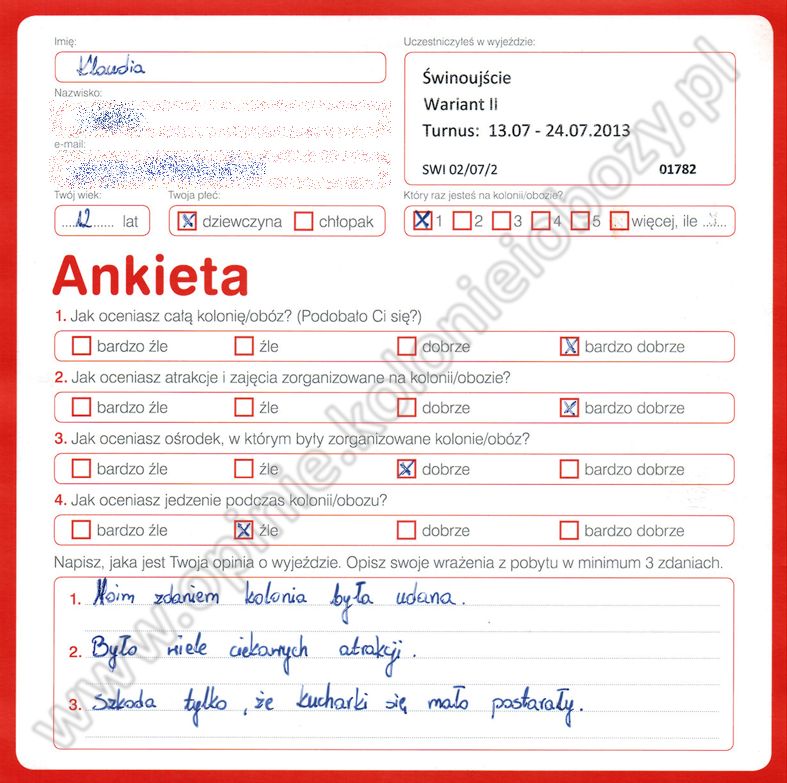 Imię:
Klaudia
Uczestniczyłeś w wyjeździe:
Świnoujście
Wariant II
Turnus: 13.07 - 24.07.2013
SWI 02/07/2 01782
Nazwisko:
e-mail:
Twój wiek:
12 lat
Twoja płeć:
dziewczyna chłopak
Który raz jesteś na kolonii/obozie?
1 2 3 4 5 więcej, ile
Ankieta
1. Jak oceniasz całą kolonię/obóz? (Podobało Ci się?)
bardzo źle źle dobrze bardzo dobrze
2. Jak oceniasz atrakcje i zajęcia zorganizowane na kolonii/obozie?
bardzo źle źle dobrze bardzo dobrze
3. Jak oceniasz ośrodek, w którym były zorganizowane kolonie/obóz?
bardzo źle źle dobrze bardzo dobrze
4. Jak oceniasz jedzenie podczas kolonii/obozu?
bardzo źle źle dobrze bardzo dobrze
Napisz, jaka jest Twoja opinia o wyjeździe. Opisz swoje wrażenia z pobytu w minimum 3 zdaniach.
1. Moim zdaniem kolonia była udana.
2. Było wiele ciekawych atrakcji.
3. Szkoda tylko, że kucharki się mało postarały.
www.opinie.kolonieiobozy.pl